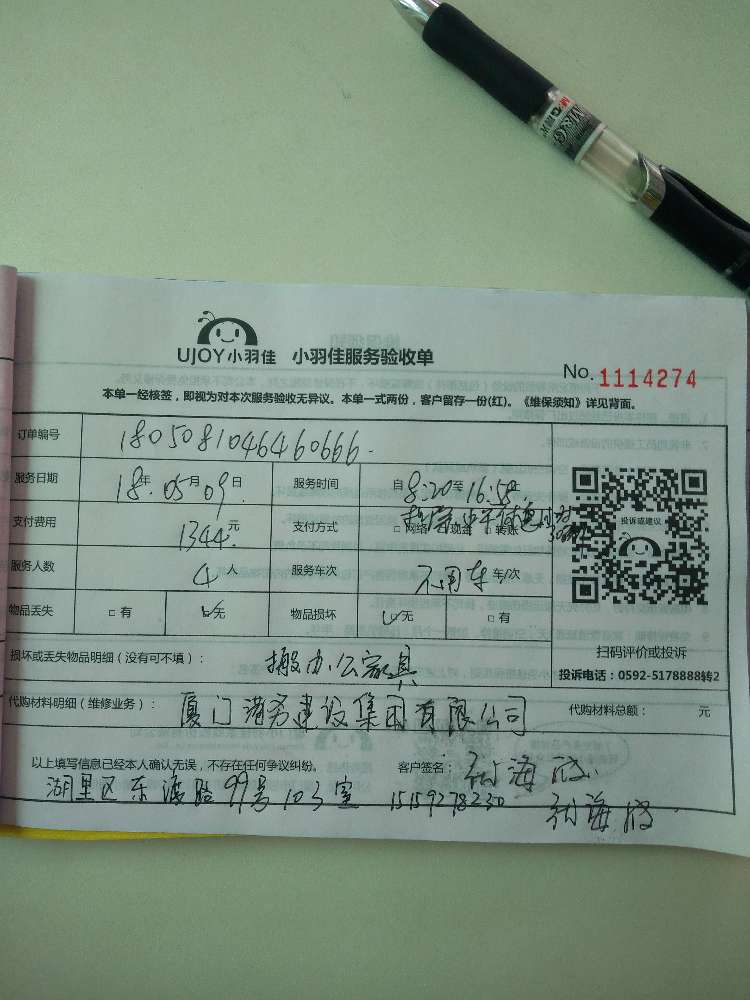 UJOY小羽佳 小羽佳服务验收单
No. 1114274
本单一经核签，即视为对本次服务验收无异议。本单一式两份，客户留存一份(红)。《维保须知》详见背面。
订单编号 1805081046460666
服务日期 18年05月09日 服务时间 自8:20至16:50止
支付费用 1344元 支付方式 □网络 □现金 □转账
服务人数 4人 服务车次 不用车 车/次
物品丢失 □有 ☑无 物品损坏 ☑无 □有
投诉或建议
扫码评价或投诉
投诉电话：0592-5178888转2
损坏或丢失物品明细（没有可不填）： 搬办公家具
代购材料明细（维修业务）： 厦门 建设集团有限公司 代购材料总额： 元
以上填写信息已经本人确认无误，不存在任何争议纠纷。 客户签名：
湖里区东渡路99号103室 15159278230